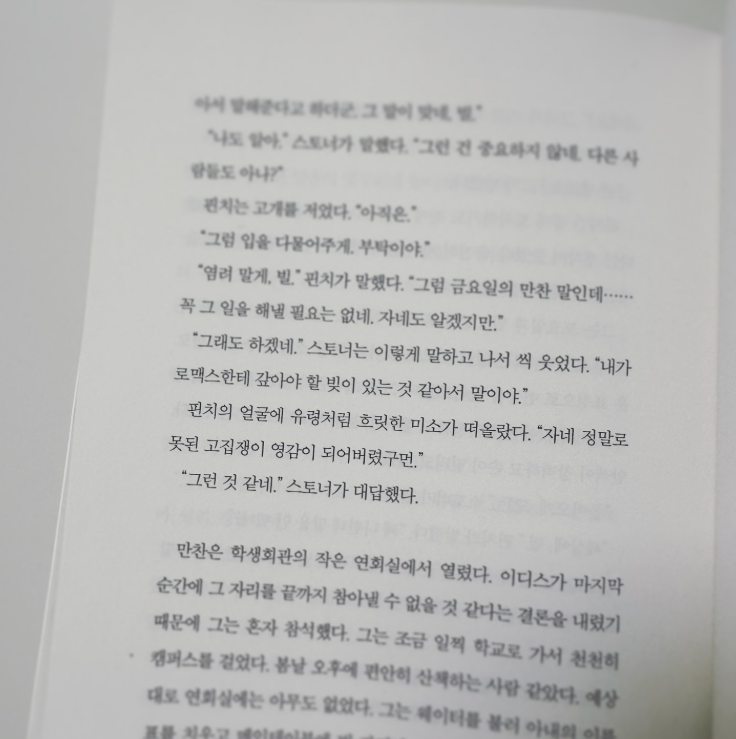 아서 말해준다고 하더군. 그 말이 맞네, 빌."
"나도 알아." 스토너가 말했다. "그런 건 중요하지 않네. 다른 사
람들도 아나?"
핀치는 고개를 저었다. "아직은."
"그럼 입을 다물어주게. 부탁이야."
"염려 말게, 빌." 핀치가 말했다. "그럼 금요일의 만찬 말인데……
꼭 그 일을 해낼 필요는 없네. 자네도 알겠지만."
"그래도 하겠네." 스토너는 이렇게 말하고 나서 씩 웃었다. "내가
로맥스한테 갚아야 할 빚이 있는 것 같아서 말이야."
핀치의 얼굴에 유령처럼 흐릿한 미소가 떠올랐다. "자네 정말로
못된 고집쟁이 영감이 되어버렸구먼."
"그런 것 같네." 스토너가 대답했다.
만찬은 학생회관의 작은 연회실에서 열렸다. 이디스가 마지막
순간에 그 자리를 끝까지 참아낼 수 없을 것 같다는 결론을 내렸기
때문에 그는 혼자 참석했다. 그는 조금 일찍 학교로 가서 천천히
캠퍼스를 걸었다. 봄날 오후에 편안히 산책하는 사람 같았다. 예상
대로 연회실에는 아무도 없었다. 그는 웨이터를 불러 아내의 이름
표를 치우고 메인테이블에